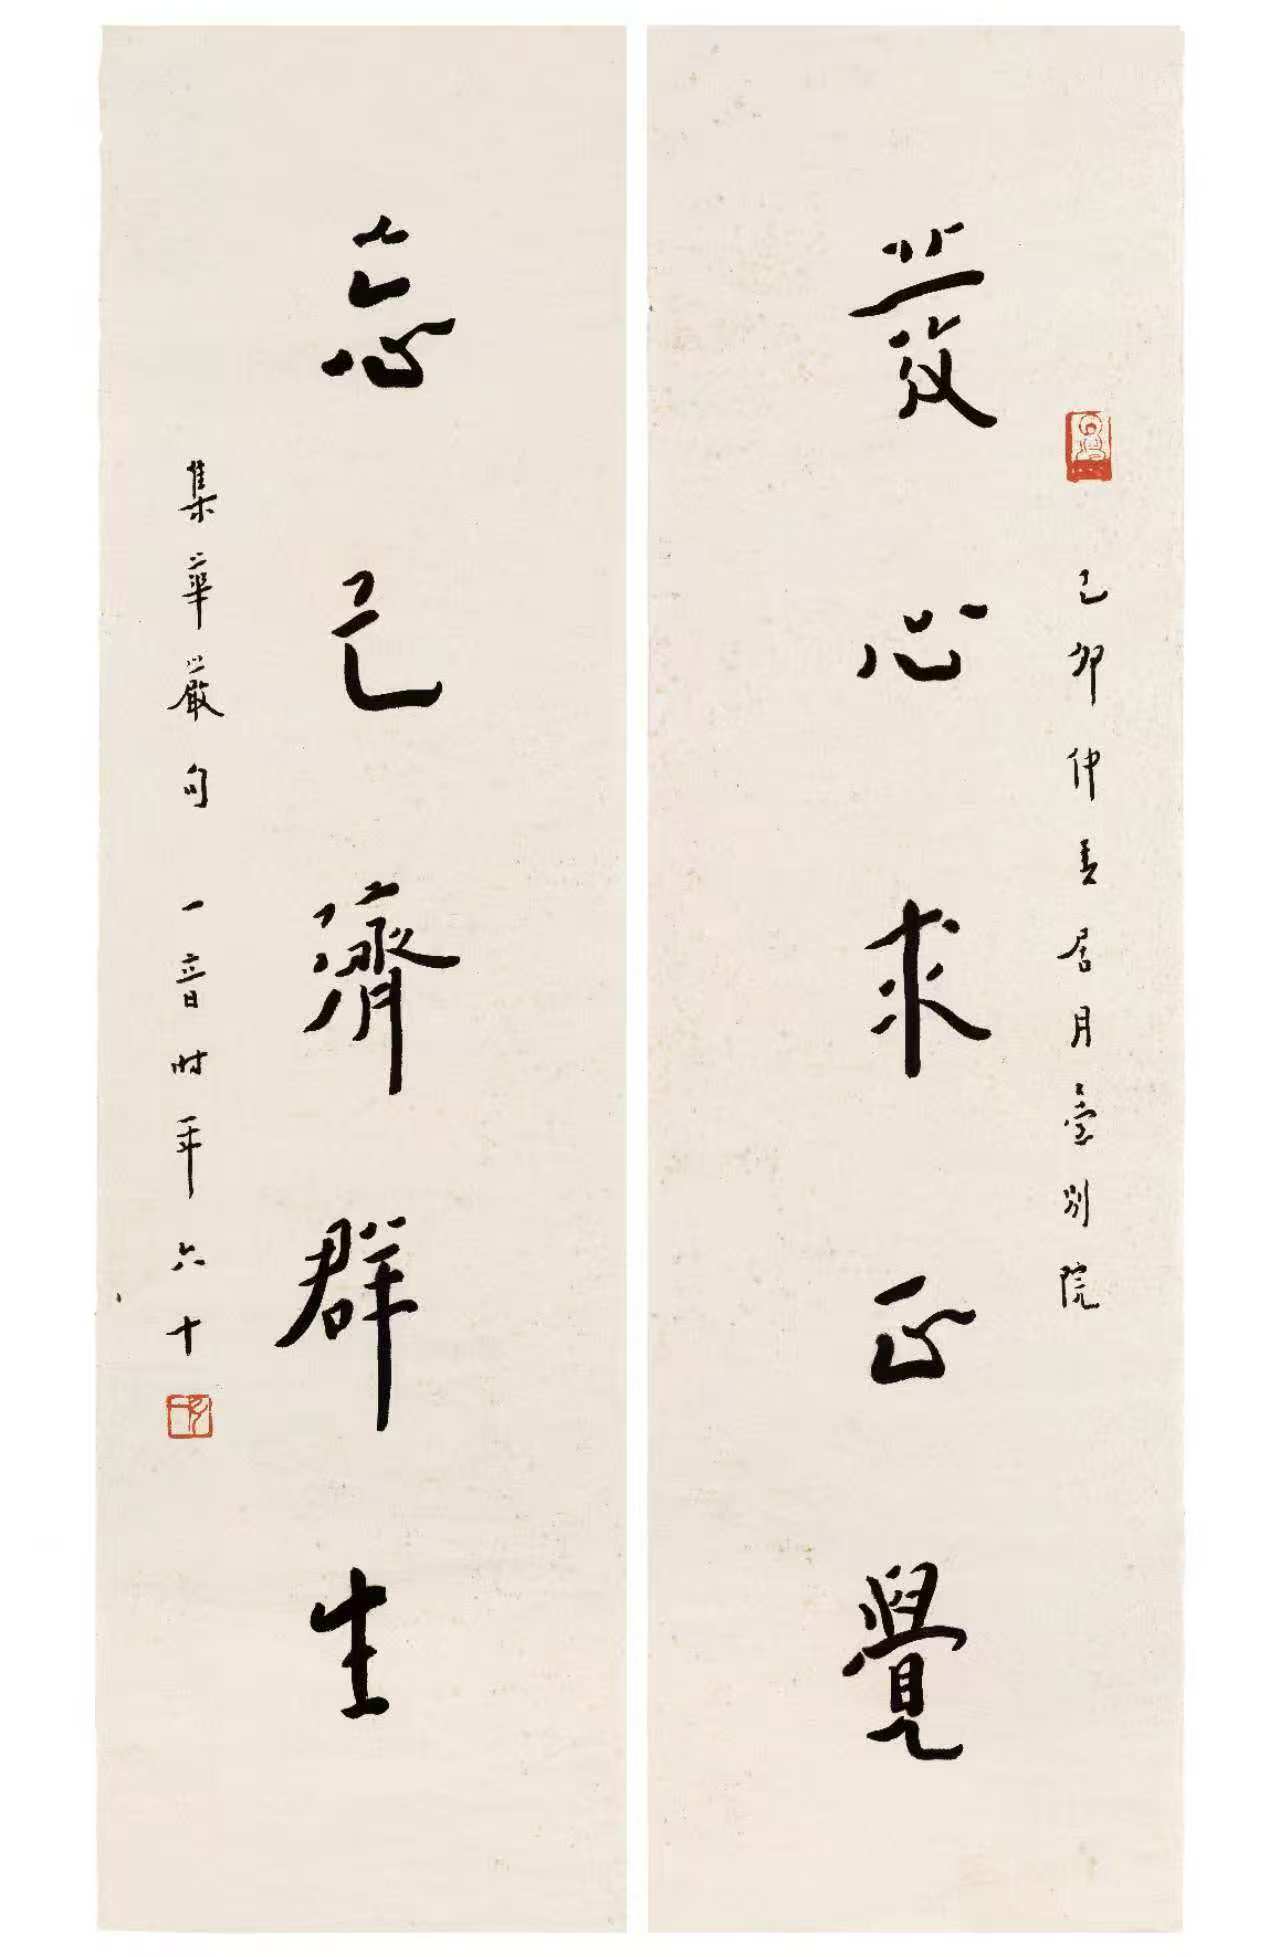 己卯仲夏居月臺別院
發心求正覺
忘己濟群生
集華嚴句 一音时年六十